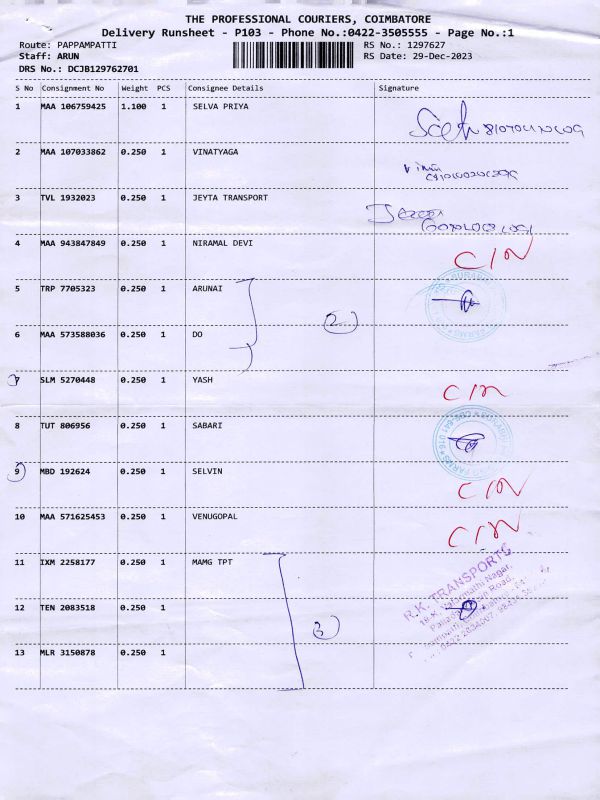 THE PROFESSIONAL COURIERS, COIMBATORE
Delivery Runsheet - P103 - Phone No.:0422-3505555 - Page No.:1
Route: PAPPAMPATTI RS No.: 1297627
Staff: ARUN RS Date: 29-Dec-2023
DRS No.: DCJB129762701
S No Consignment No Weight PCS Consignee Details Signature
1 MAA 106759425 1.100 1 SELVA PRIYA
2 MAA 107033862 0.250 1 VINATYAGA
3 TVL 1932023 0.250 1 JEYTA TRANSPORT
4 MAA 943847849 0.250 1 NIRAMAL DEVI C/N
5 TRP 7705323 0.250 1 ARUNAI
2
6 MAA 573588036 0.250 1 DO
7 SLM 5270448 0.250 1 YASH C/N
8 TUT 806956 0.250 1 SABARI
9 MBD 192624 0.250 1 SELVIN C/N
10 MAA 571625453 0.250 1 VENUGOPAL C/N
11 IXM 2258177 0.250 1 MAMG TPT
R.K. TRANSPORTS
12 TEN 2083518 0.250 1
3
13 MLR 3150878 0.250 1